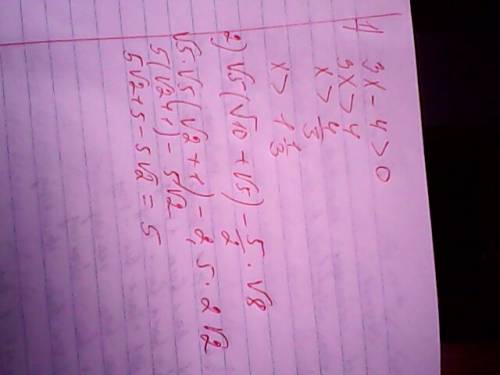 1) 3x - 4 > 0
3x > 4
x > 4/3
x > 1 1/3
2) √5(√10 + √5) - 5/2 · √8
√5 · √5(√2 + 1) - 2,5 · 2√2
5(√2 + 1) - 5√2
5√2 + 5 - 5√2 = 5